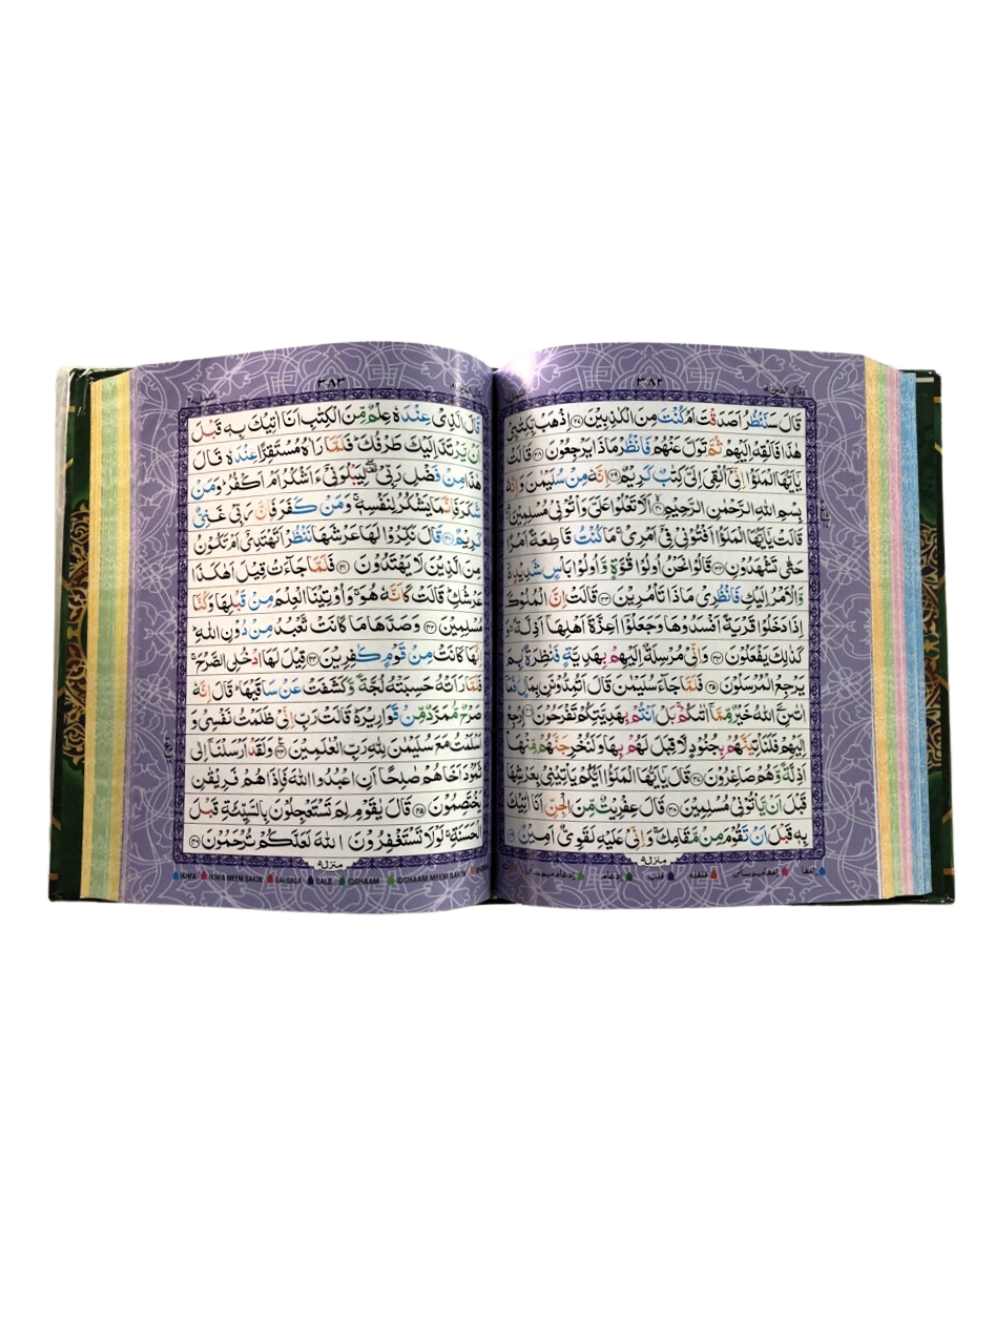 ٣٨٢
قَالَ سَنَنْظُرُ اَصَدَقْتَ اَمْ كُنْتَ مِنَ الْكٰذِبِيْنَ ﴿٢٧﴾ اِذْهَبْ بِّكِتٰبِيْ
هٰذَا فَاَلْقِهْ اِلَيْهِمْ ثُمَّ تَوَلَّ عَنْهُمْ فَانْظُرْ مَاذَا يَرْجِعُوْنَ ﴿٢٨﴾ قَالَتْ
يٰاَيُّهَا الْمَلَؤُا اِنِّيْٓ اُلْقِيَ اِلَيَّ كِتٰبٌ كَرِيْمٌ ﴿٢٩﴾ اِنَّهٗ مِنْ سُلَيْمٰنَ وَاِنَّهٗ
بِسْمِ اللّٰهِ الرَّحْمٰنِ الرَّحِيْمِ ﴿٣٠﴾ اَلَّا تَعْلُوْا عَلَيَّ وَاْتُوْنِيْ مُسْلِمِيْنَ ﴿٣١﴾
قَالَتْ يٰاَيُّهَا الْمَلَؤُا اَفْتُوْنِيْ فِيْٓ اَمْرِيْ ۚ مَا كُنْتُ قَاطِعَةً اَمْرًا
حَتّٰى تَشْهَدُوْنِ ﴿٣٢﴾ قَالُوْا نَحْنُ اُولُوْا قُوَّةٍ وَّاُولُوْا بَاْسٍ شَدِيْدٍ
وَّالْاَمْرُ اِلَيْكِ فَانْظُرِيْ مَاذَا تَاْمُرِيْنَ ﴿٣٣﴾ قَالَتْ اِنَّ الْمُلُوْكَ
اِذَا دَخَلُوْا قَرْيَةً اَفْسَدُوْهَا وَجَعَلُوْٓا اَعِزَّةَ اَهْلِهَآ اَذِلَّةً ۚ وَ
كَذٰلِكَ يَفْعَلُوْنَ ﴿٣٤﴾ وَاِنِّيْ مُرْسِلَةٌ اِلَيْهِمْ بِهَدِيَّةٍ فَنٰظِرَةٌۢ بِمَ
يَرْجِعُ الْمُرْسَلُوْنَ ﴿٣٥﴾ فَلَمَّا جَآءَ سُلَيْمٰنَ قَالَ اَتُمِدُّوْنَنِ بِمَالٍ فَمَآ
اٰتٰىنِيَ اللّٰهُ خَيْرٌ مِّمَّآ اٰتٰىكُمْ ۚ بَلْ اَنْتُمْ بِهَدِيَّتِكُمْ تَفْرَحُوْنَ ﴿٣٦﴾ اِرْجِعْ
اِلَيْهِمْ فَلَنَاْتِيَنَّهُمْ بِجُنُوْدٍ لَّا قِبَلَ لَهُمْ بِهَا وَلَنُخْرِجَنَّهُمْ مِّنْهَآ
اَذِلَّةً وَّهُمْ صَاغِرُوْنَ ﴿٣٧﴾ قَالَ يٰاَيُّهَا الْمَلَؤُا اَيُّكُمْ يَاْتِيْنِيْ بِعَرْشِهَا
قَبْلَ اَنْ يَّاْتُوْنِيْ مُسْلِمِيْنَ ﴿٣٨﴾ قَالَ عِفْرِيْتٌ مِّنَ الْجِنِّ اَنَا اٰتِيْكَ
بِهٖ قَبْلَ اَنْ تَقُوْمَ مِنْ مَّقَامِكَ ۚ وَاِنِّيْ عَلَيْهِ لَقَوِيٌّ اَمِيْنٌ ﴿٣٩﴾
منزل٥
اخفا اخفا میم ساکن قلقلہ قلب ادغام ادغام میم ساکن
٣٨٣
قَالَ الَّذِيْ عِنْدَهٗ عِلْمٌ مِّنَ الْكِتٰبِ اَنَا اٰتِيْكَ بِهٖ قَبْلَ
اَنْ يَّرْتَدَّ اِلَيْكَ طَرْفُكَ ۗ فَلَمَّا رَاٰهُ مُسْتَقِرًّا عِنْدَهٗ قَالَ
هٰذَا مِنْ فَضْلِ رَبِّيْ ۖ لِيَبْلُوَنِيْٓ ءَاَشْكُرُ اَمْ اَكْفُرُ ۗ وَمَنْ
شَكَرَ فَاِنَّمَا يَشْكُرُ لِنَفْسِهٖ ۚ وَمَنْ كَفَرَ فَاِنَّ رَبِّيْ غَنِيٌّ
كَرِيْمٌ ﴿٤٠﴾ قَالَ نَكِّرُوْا لَهَا عَرْشَهَا نَنْظُرْ اَتَهْتَدِيْٓ اَمْ تَكُوْنُ
مِنَ الَّذِيْنَ لَا يَهْتَدُوْنَ ﴿٤١﴾ فَلَمَّا جَآءَتْ قِيْلَ اَهٰكَذَا
عَرْشُكِ ۗ قَالَتْ كَاَنَّهٗ هُوَ ۚ وَاُوْتِيْنَا الْعِلْمَ مِنْ قَبْلِهَا وَكُنَّا
مُسْلِمِيْنَ ﴿٤٢﴾ وَصَدَّهَا مَا كَانَتْ تَّعْبُدُ مِنْ دُوْنِ اللّٰهِ ۗ
اِنَّهَا كَانَتْ مِنْ قَوْمٍ كٰفِرِيْنَ ﴿٤٣﴾ قِيْلَ لَهَا ادْخُلِي الصَّرْحَ ۚ
فَلَمَّا رَاَتْهُ حَسِبَتْهُ لُجَّةً وَّكَشَفَتْ عَنْ سَاقَيْهَا ۗ قَالَ اِنَّهٗ
صَرْحٌ مُّمَرَّدٌ مِّنْ قَوَارِيْرَ ۗ قَالَتْ رَبِّ اِنِّيْ ظَلَمْتُ نَفْسِيْ وَ
اَسْلَمْتُ مَعَ سُلَيْمٰنَ لِلّٰهِ رَبِّ الْعٰلَمِيْنَ ﴿٤٤﴾ وَلَقَدْ اَرْسَلْنَآ اِلٰى
ثَمُوْدَ اَخَاهُمْ صٰلِحًا اَنِ اعْبُدُوا اللّٰهَ فَاِذَا هُمْ فَرِيْقٰنِ
يَخْتَصِمُوْنَ ﴿٤٥﴾ قَالَ يٰقَوْمِ لِمَ تَسْتَعْجِلُوْنَ بِالسَّيِّئَةِ قَبْلَ
الْحَسَنَةِ ۚ لَوْلَا تَسْتَغْفِرُوْنَ اللّٰهَ لَعَلَّكُمْ تُرْحَمُوْنَ ﴿٤٦﴾
منزل٥
IKHFA IKHFA MEEM SAKIN QALQALA QALB IDGHAAM IDGHAAM MEEM SAKIN